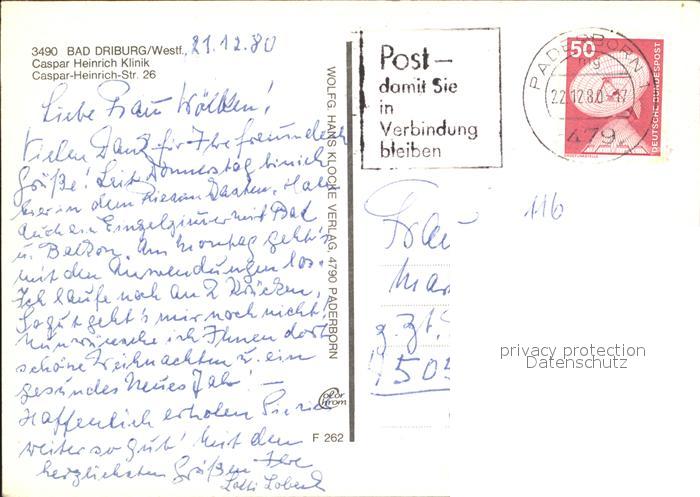 3490 BAD DRIBURG/Westf.
Caspar Heinrich Klinik
Caspar-Heinrich-Str. 26
21.12.80
Liebe Frau
Vielen Dank für Ihre freundlich
Grüße! Seit Donnerstag bin ich
hier in dem Riesen Kasten. Habe
auch ein Einzelzimmer mit Bad
u. Balkon. Am Montag geht's
mit den Anwendungen los.
Ich laufe noch an 2 Krücken,
so gut geht's mir noch nicht.
Nun wünsche ich Ihnen dort
schöne Weihnachten u. ein
gesundes Neues Jahr! —
Hoffentlich erholen Sie sich
weiter so gut! Mit den
herzlichsten Grüßen Ihre
Lotti
WOLFG. HANS KLOCKE VERLAG, 4790 PADERBORN
color
chrom
F 262
Post –
damit Sie
in
Verbindung
bleiben
PADERBORN 1
mg
22.12.80-17
479
50
DEUTSCHE BUNDESPOST
116
Frau
Mar
z. Zt.
privacy protection
Datenschutz